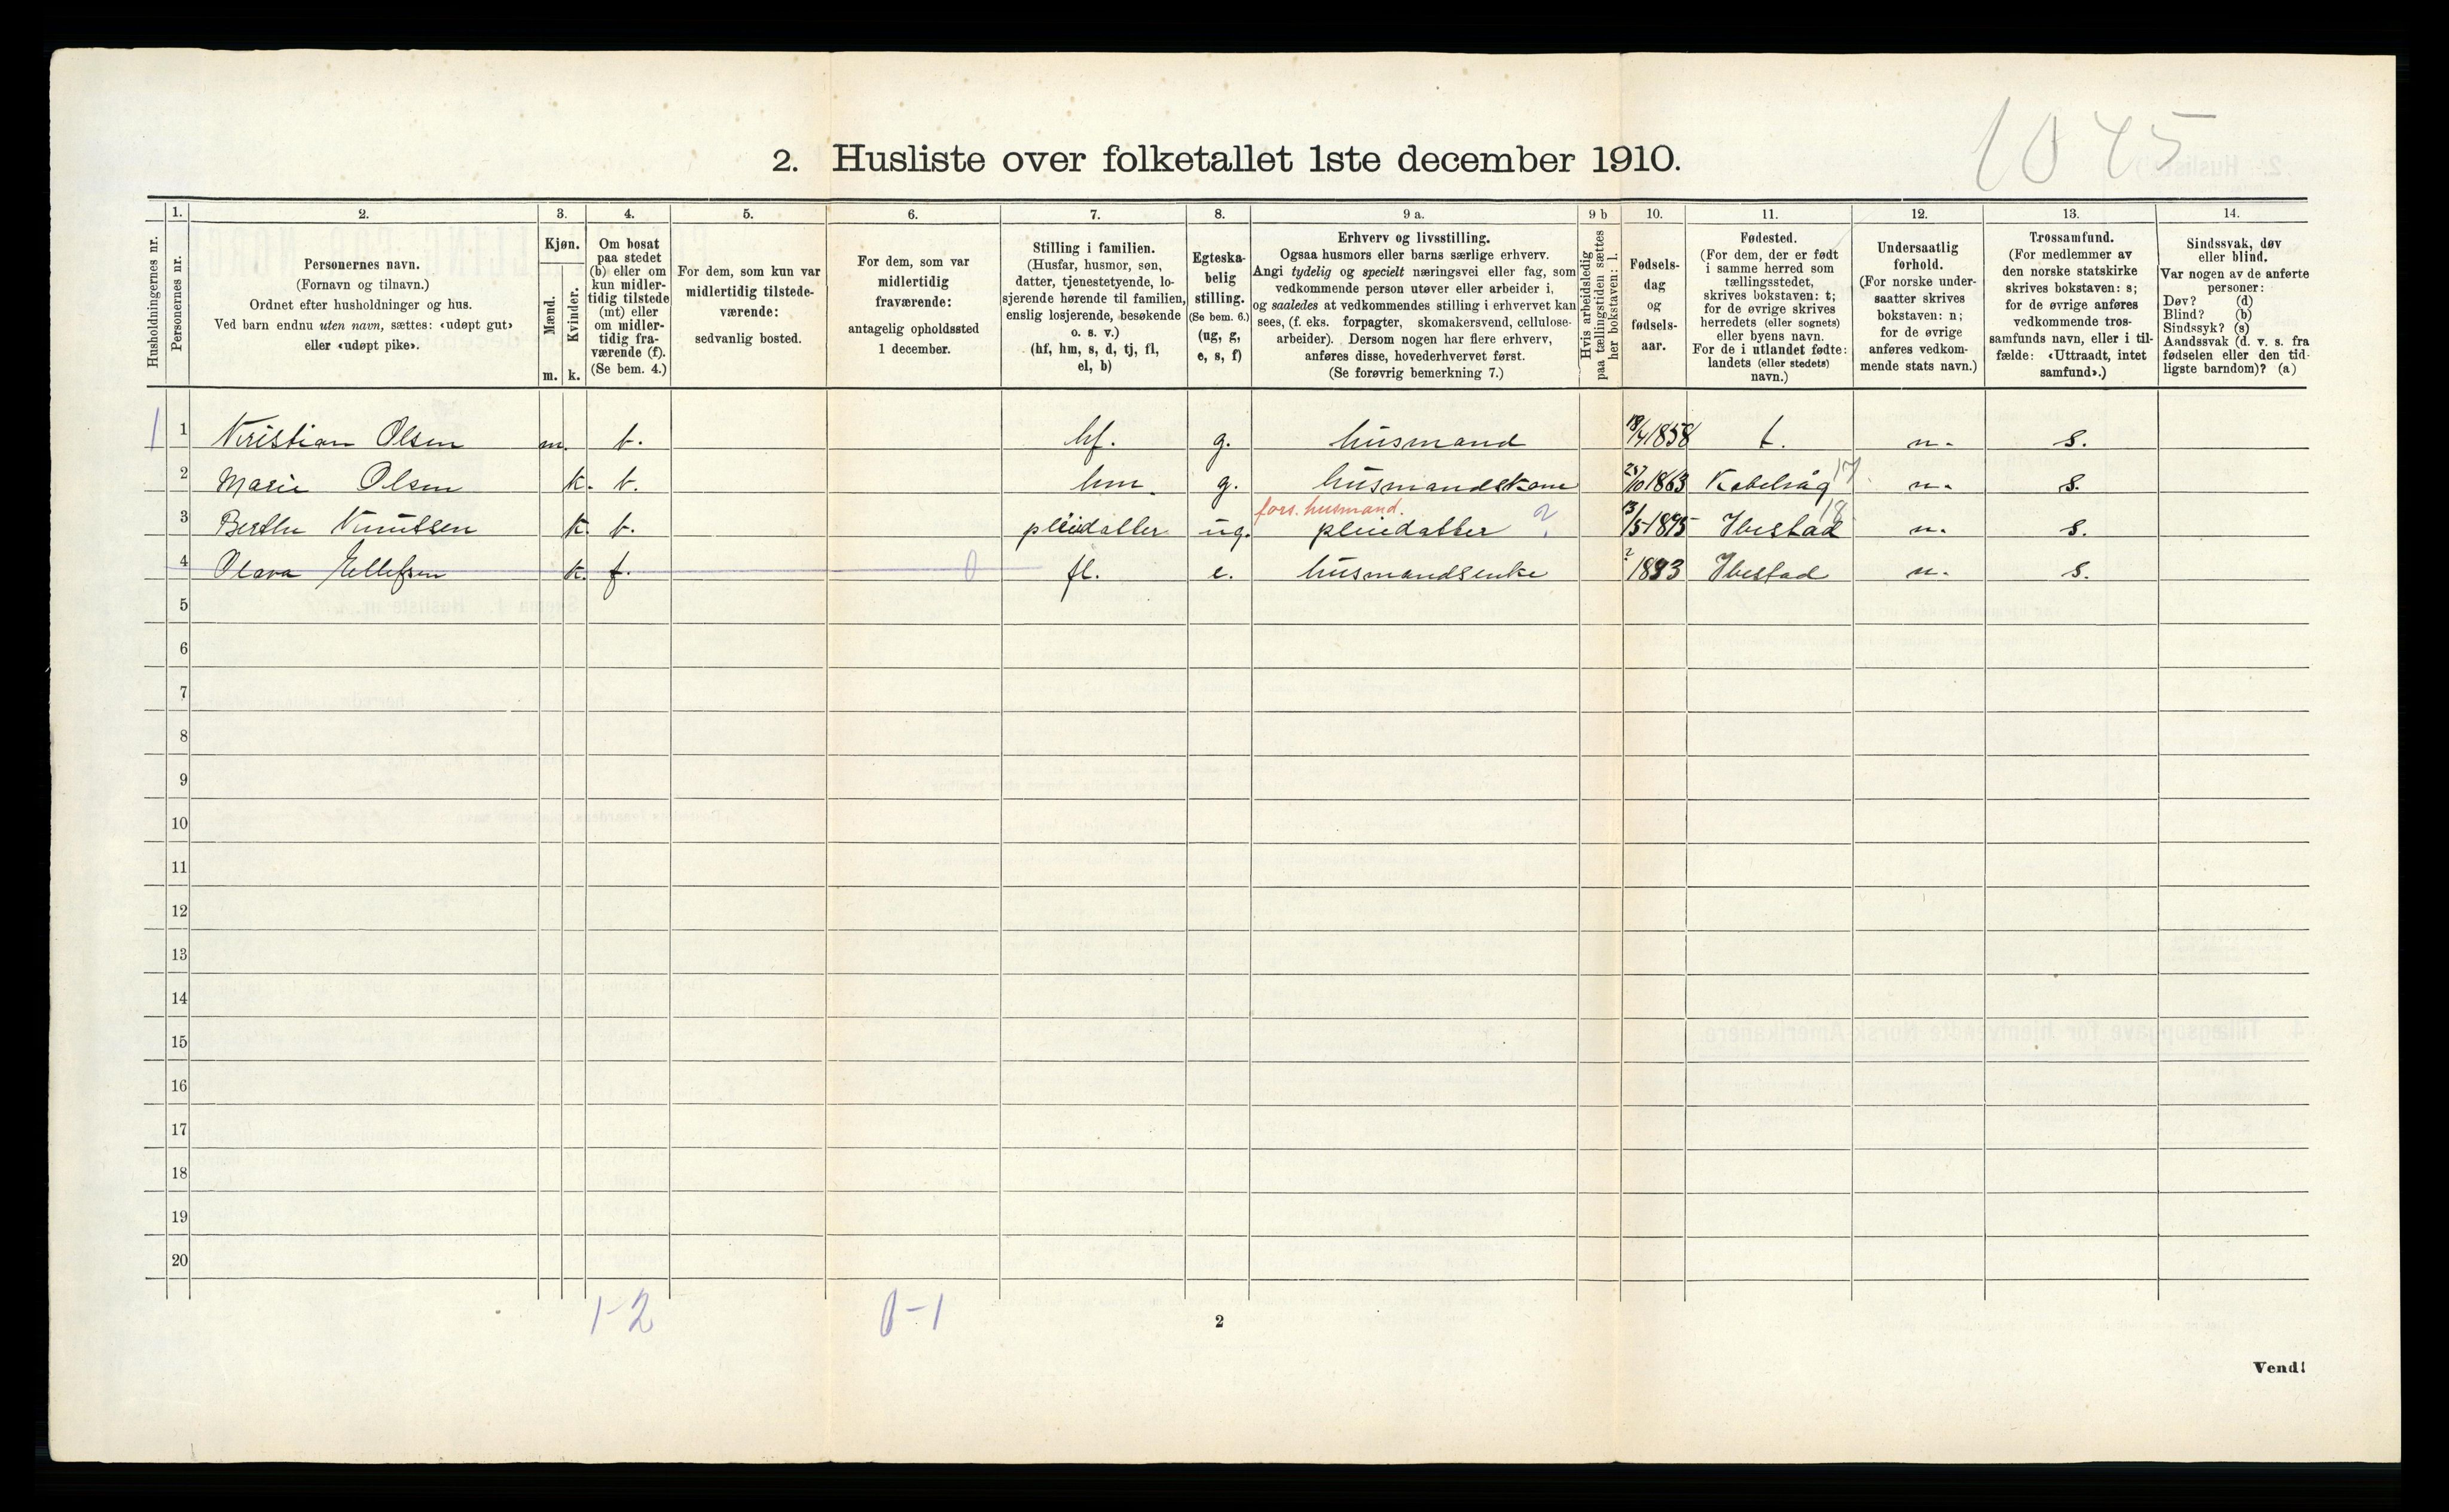 1045
2. Husliste over folketallet 1ste december 1910.
Husholdningernes nr.
1.
Personernes nr.
2.
Personernes navn.
(Fornavn og tilnavn.)
Ordnet efter husholdninger og hus.
Ved barn endnu uten navn, sættes: «udøpt gut»
eller «udøpt pike».
3.
Kjøn.
Mænd.
Kvinder.
m. k.
4.
Om bosat
paa stedet
(b) eller om
kun midler-
tidig tilstede
(mt) eller
om midler-
tidig fra-
værende (f).
(Se bem. 4.)
5.
For dem, som kun var
midlertidig tilstede-
værende:
sedvanlig bosted.
6.
For dem, som var
midlertidig
fraværende:
antagelig opholdssted
1 december.
7.
Stilling i familien.
(Husfar, husmor, søn,
datter, tjenestetyende, lo-
sjerende hørende til familien,
enslig losjerende, besøkende
o. s. v.)
(hf, hm, s, d, tj, fl,
el, b)
8.
Egteska-
belig
stilling.
(Se bem. 6.)
(ug, g,
e, s, f)
9 a.
Erhverv og livsstilling.
Ogsaa husmors eller barns særlige erhverv.
Angi tydelig og specielt næringsvei eller fag, som
vedkommende person utøver eller arbeider i,
og saaledes at vedkommendes stilling i erhvervet kan
sees, (f. eks. forpagter, skomakersvend, cellulose-
arbeider). Dersom nogen har flere erhverv,
anføres disse, hovederhvervet først.
(Se forøvrig bemerkning 7.)
9 b
Hvis arbeidsledig
paa tællingstiden sættes
her bokstaven: l.
10.
Fødsels-
dag
og
fødsels-
aar.
11.
Fødested.
(For dem, der er født
i samme herred som
tællingsstedet,
skrives bokstaven: t;
for de øvrige skrives
herredets (eller sognets)
eller byens navn.
For de i utlandet fødte:
landets (eller stedets)
navn.)
12.
Undersaatlig
forhold.
(For norske under-
saatter skrives
bokstaven: n;
for de øvrige
anføres vedkom-
mende stats navn.)
13.
Trossamfund.
(For medlemmer av
den norske statskirke
skrives bokstaven: s;
for de øvrige anføres
vedkommende tros-
samfunds navn, eller i til-
fælde: «Uttraadt, intet
samfund».)
14.
Sindssvak, døv
eller blind.
Var nogen av de anførte
personer:
Døv? (d)
Blind? (b)
Sindssyk? (s)
Aandssvak (d. v. s. fra
fødselen eller den tid-
ligste barndom)? (a)
1 1 Kristian Olsen m. b. hf. g. husmand 18/4 1858 t. n. s.
2 Marie Olsen k. b. hm. g. husmandskone 1863 Kabelvåg 17 n. s.
fors. husmand. 18
3 Berthe Knutsen k. b. pleiedatter ug. pleiedatter ? 1895 Ibestad n. s.
4 Olava Ellefsen k. f. 0 fl. e. husmandsenke Ibestad n. s.
5
6
7
8
9
10
11
12
13
14
15
16
17
18
19
20
1-2 0-1
2
Vend!